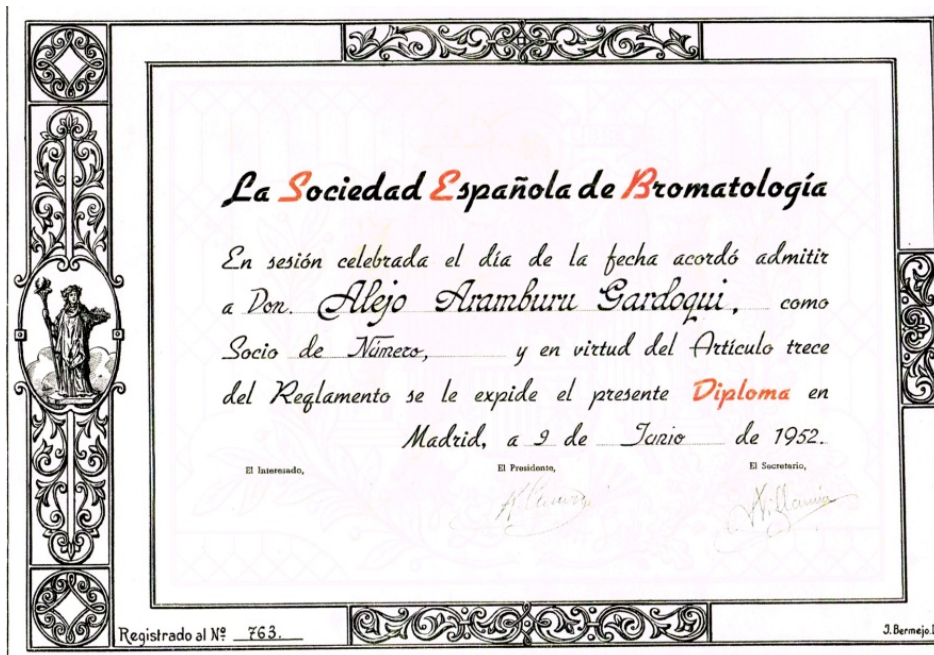 La Sociedad Española de Bromatología
En sesión celebrada el día de la fecha acordó admitir
a Don. Alejo Aramburu Gardoqui, como
Socio de Número, y en virtud del Artículo trece
del Reglamento se le expide el presente Diploma en
Madrid, a 9 de Junio de 1952.
El Interesado, El Presidente, El Secretario,
Registrado al Nº 763.
J. Bermejo.